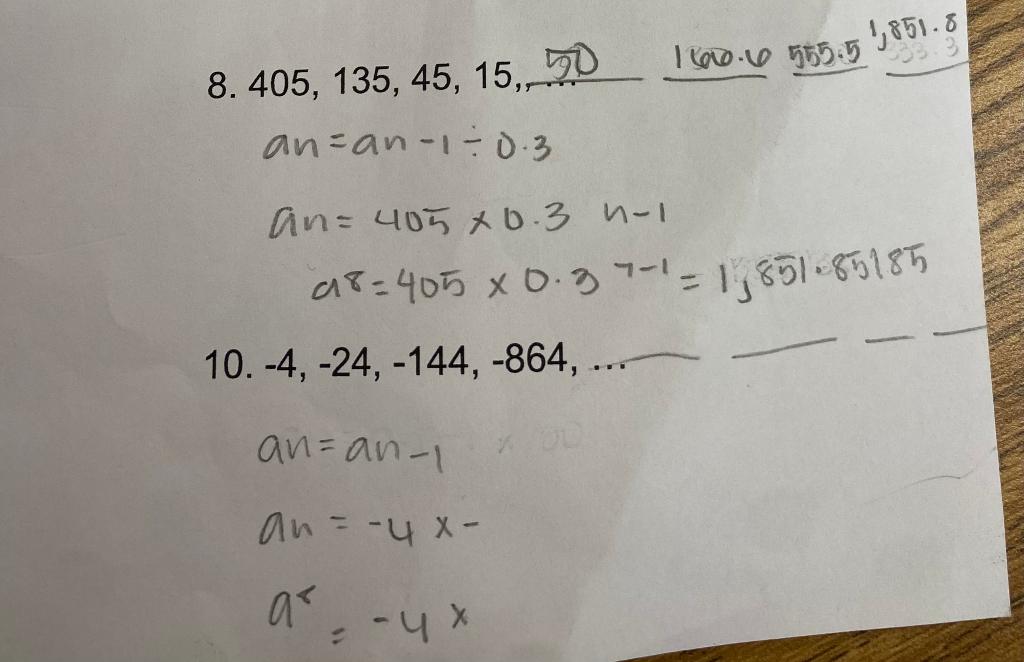 8. 405, 135, 45, 15,, ... 50 166.6 555.5 1,851.8
an = an - 1 ÷ 0.3
an = 405 x 0.3 n-1
a8 = 405 x 0.3 7-1 = 1,851.85185
10. -4, -24, -144, -864, ...
an = an - 1
an = -4 x -
a8 = -4 x